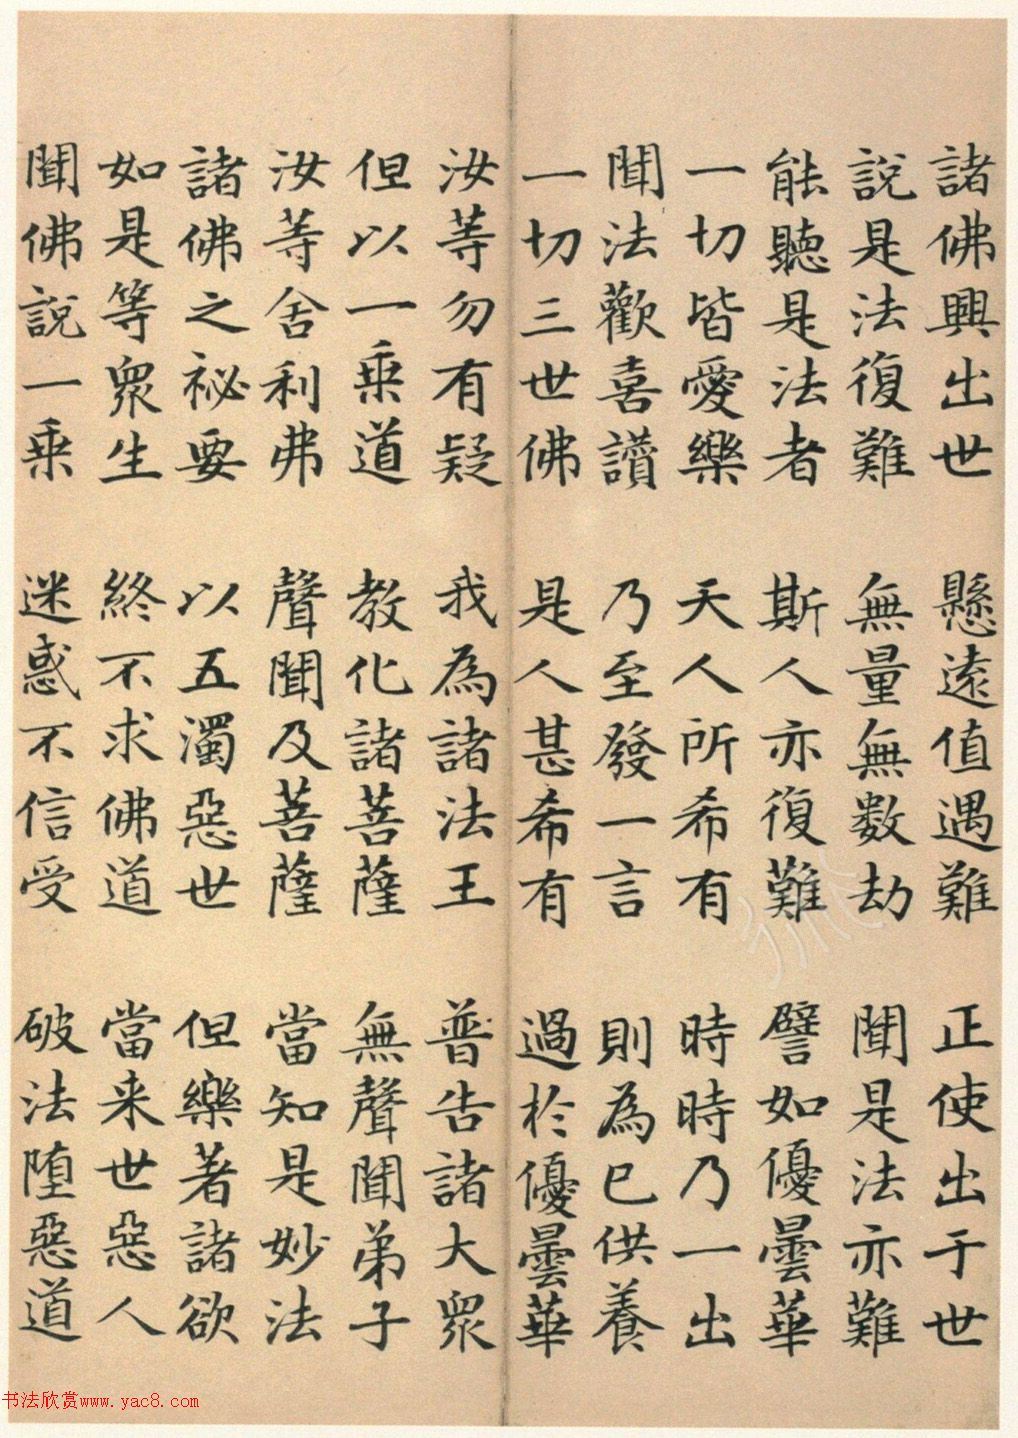 諸佛興出世 懸遠值遇難 正使出于世
說是法復難 無量無數劫 聞是法亦難
能聽是法者 斯人亦復難 譬如優曇華
一切皆愛樂 天人所希有 時時乃一出
聞法歡喜讚 乃至發一言 則為已供養
一切三世佛 是人甚希有 過於優曇華
汝等勿有疑 我為諸法王 普告諸大眾
但以一乗道 教化諸菩薩 無聲聞弟子
汝等舍利弗 聲聞及菩薩 當知是妙法
諸佛之祕要 以五濁惡世 但樂著諸欲
如是等眾生 終不求佛道 當来世惡人
聞佛說一乗 迷惑不信受 破法堕惡道
书法欣赏www.yac8.com